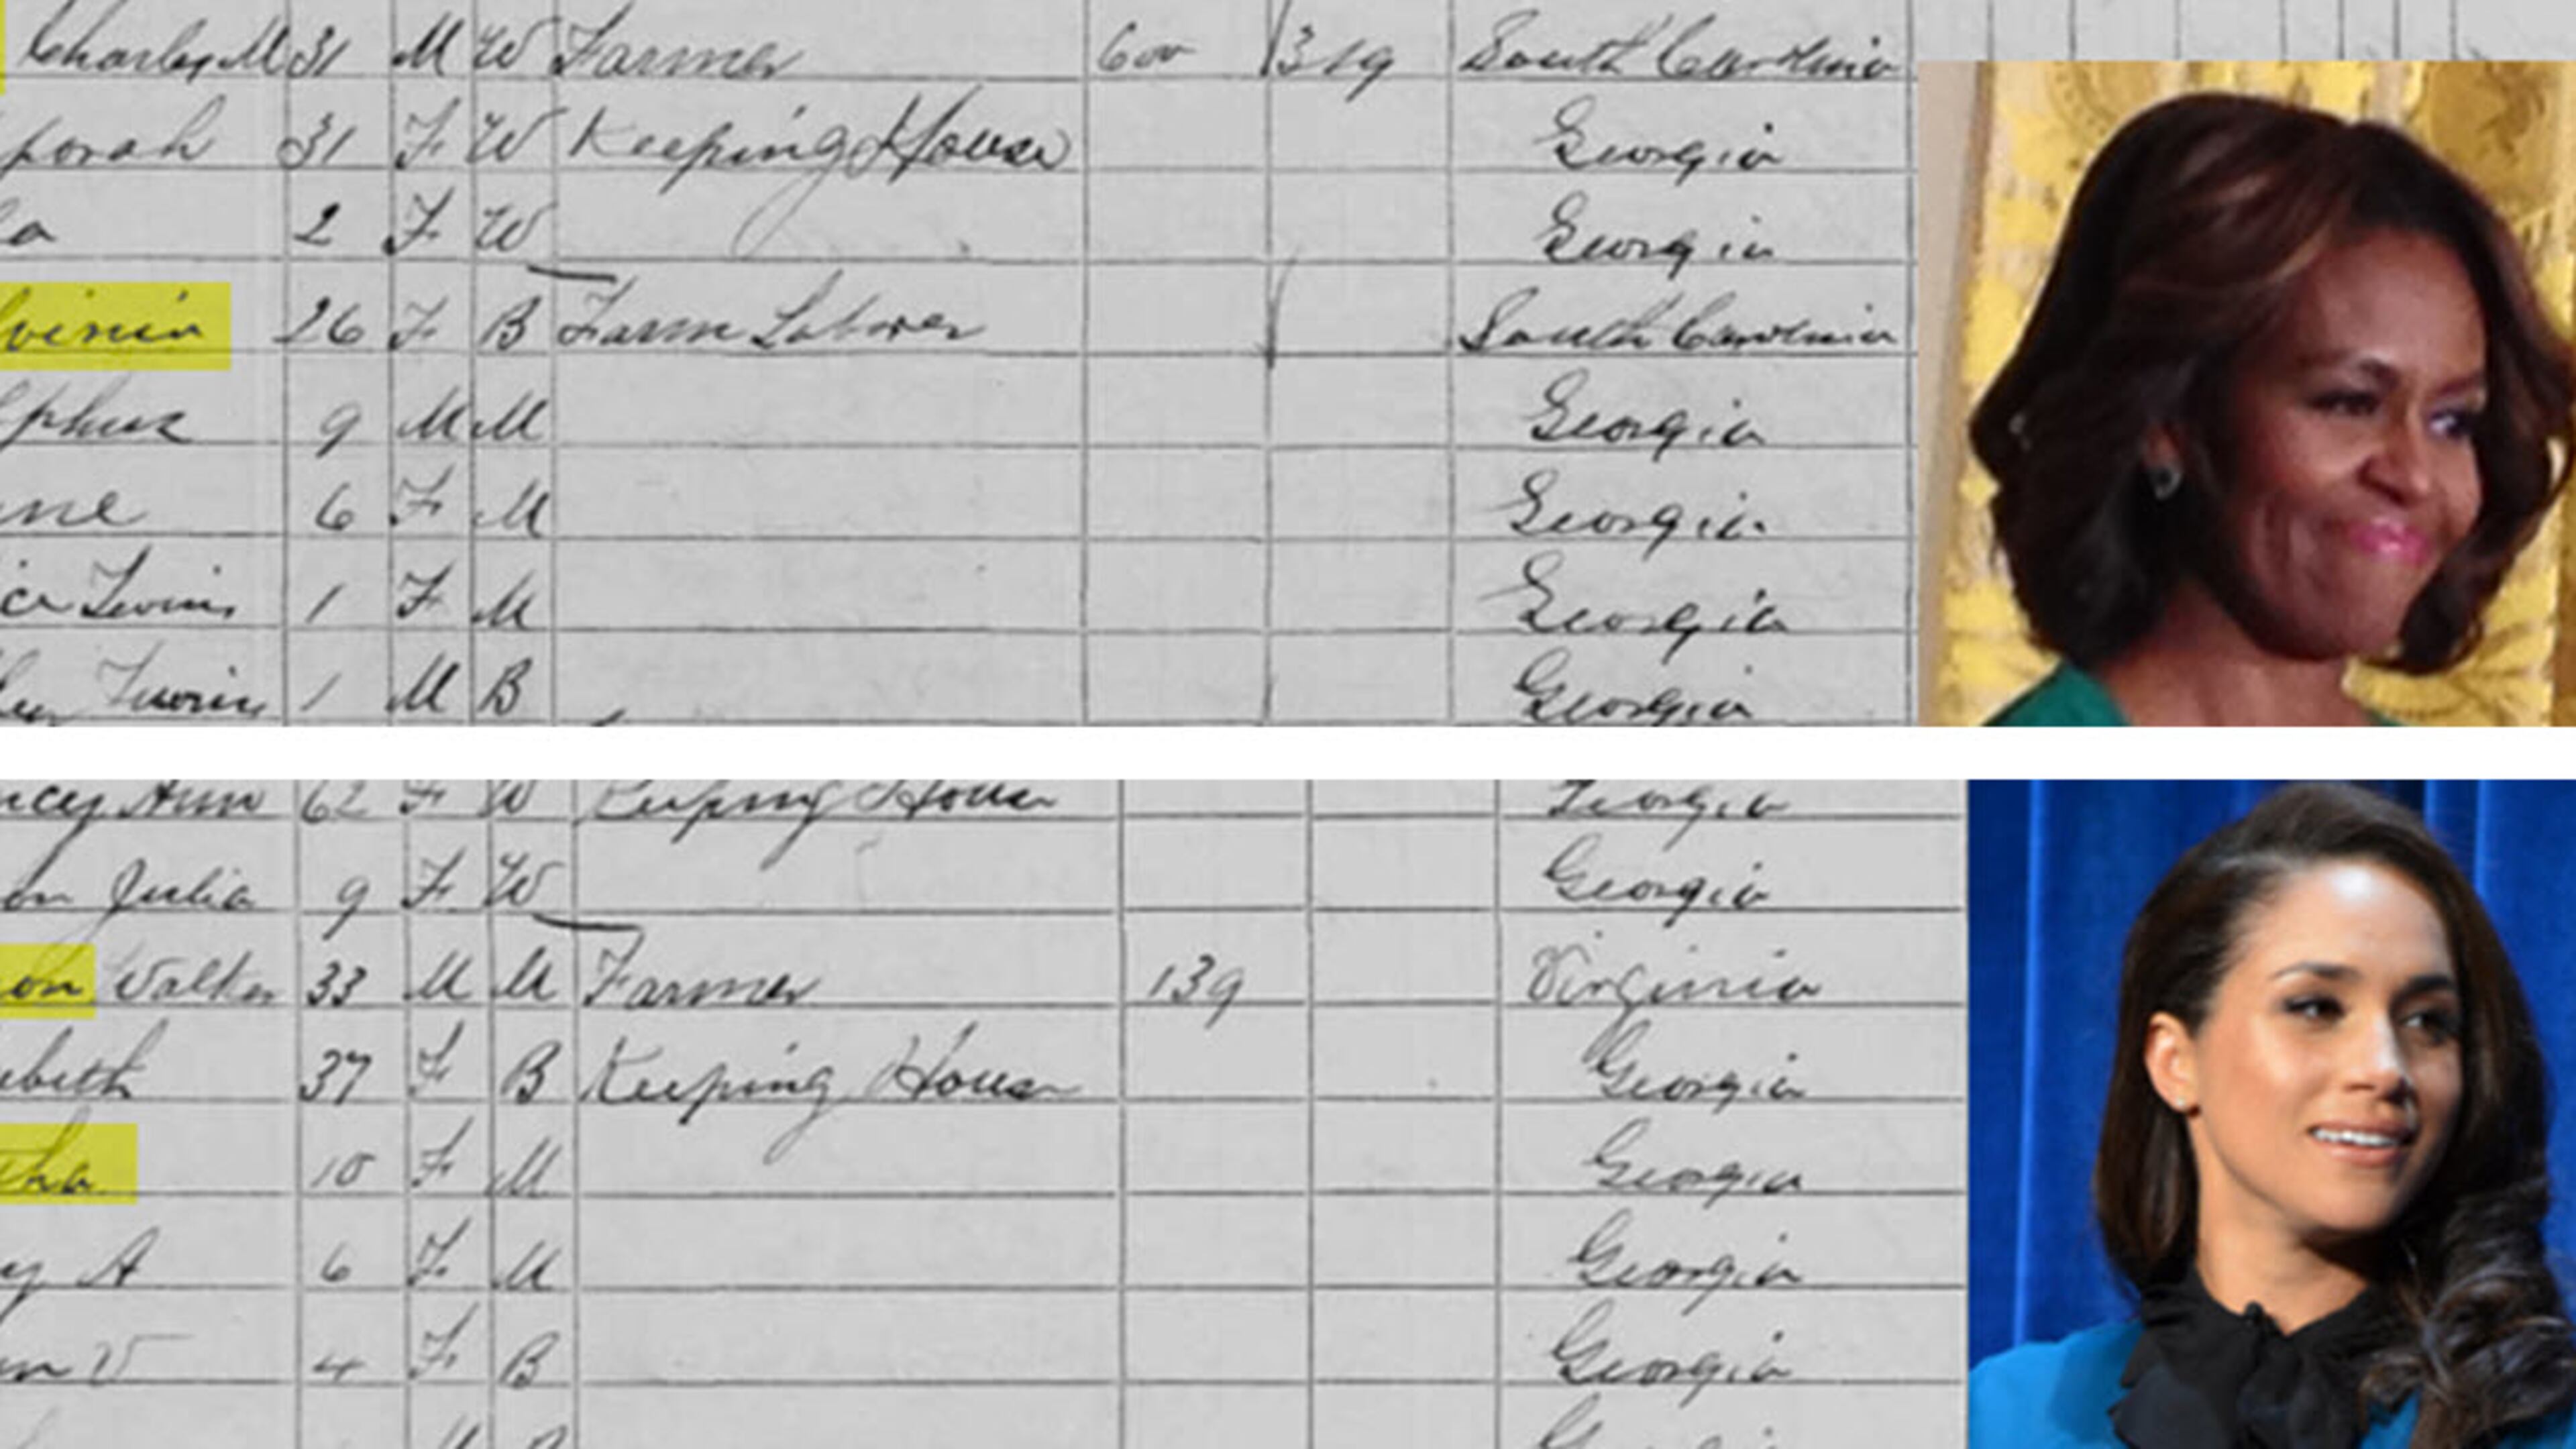 Charley M 31 M W Farmer 600 319 South Carolina
porah 31 F W Keeping House Georgia
la 2 F W Georgia
lvinia 26 F B Farm Laborer South Carolina
lphus 9 M M Georgia
ane 6 F M Georgia
ice Twins 1 F M Georgia
Twins 1 M B Georgia
ncey Ann 62 F W Keeping House Georgia
on Julia 9 F W Georgia
on Walker 33 M M Farmer 139 Virginia
abeth 37 F B Keeping House Georgia
tha 10 F M Georgia
y A 6 F M Georgia
nn V 4 F B Georgia